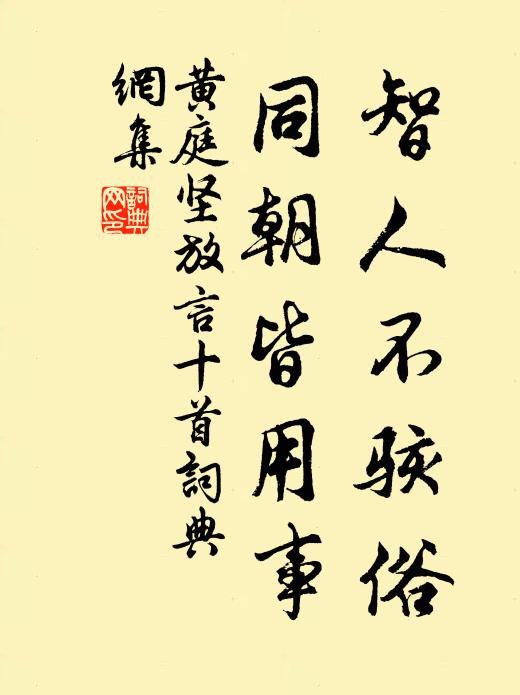 智人不骇俗
同朝皆用事
黄庭坚放言十首詞典
網集
詞典
网印